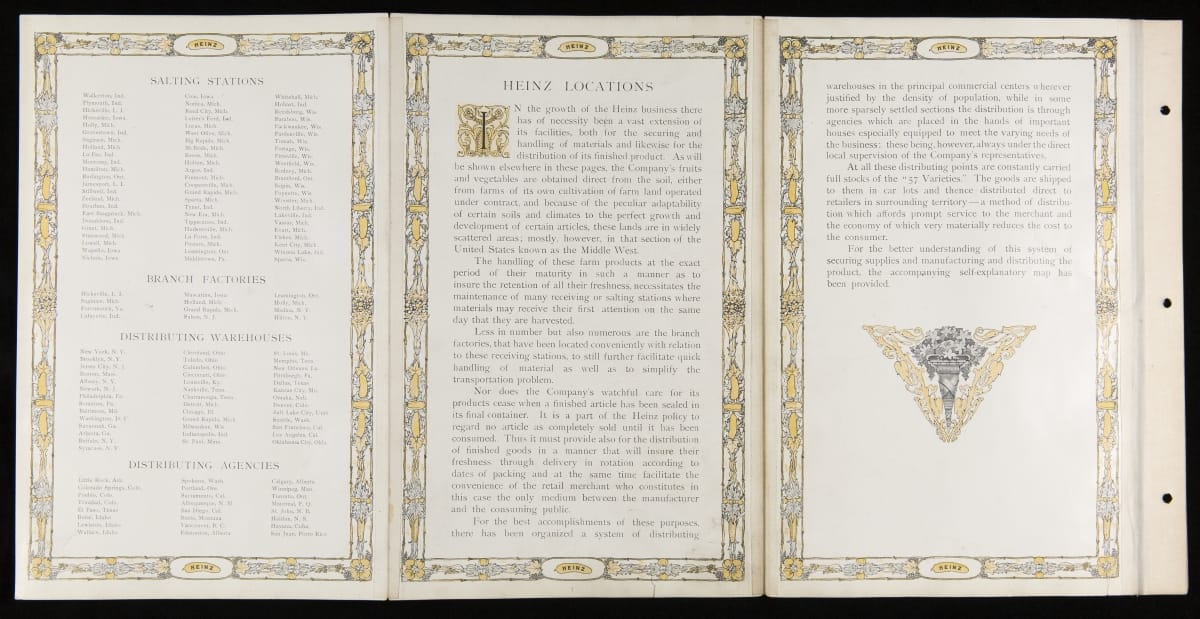 HEINZ
SALTING STATIONS
Walkerton, Ind.
Plymouth, Ind.
Hicksville, L. I.
Muscatine, Iowa
Holly, Mich.
Grovertown, Ind.
Saginaw, Mich.
Holland, Mich.
La Paz, Ind.
Monterey, Ind.
Hamilton, Mich.
Burlington, Ont.
Jamesport, L. I.
Stillwell, Ind.
Zeeland, Mich.
Bourbon, Ind.
East Saugatuck, Mich.
Donaldson, Ind.
Grant, Mich.
Pinewood, Mich.
Lowell, Mich.
Wapello, Iowa
Nichols, Iowa
Cone, Iowa
Reed City, Mich.
Leiter's Ford, Ind.
Lucas, Mich.
West Olive, Mich.
Big Rapids, Mich.
McBride, Mich.
Holton, Mich.
Argos, Ind.
Fremont, Mich.
Coopersville, Mich.
Grand Rapids, Mich.
Sparta, Mich.
Tyner, Ind.
New Era, Mich.
Tippecanoe, Ind.
Hudsonville, Mich.
La Porte, Ind.
Posens, Mich.
Leamington, Ont.
Middletown, Pa.
Whitehall, Mich.
Hobart, Ind.
Reedsburg, Wis.
Baraboo, Wis.
Packwaukee, Wis.
Pardeeville, Wis.
Tomah, Wis.
Portage, Wis.
Westfield, Wis.
Rodney, Mich.
Brantford, Ont.
Poynette, Wis.
North Liberty, Ind.
Lakeville, Ind.
Vassar, Mich.
Evart, Mich.
Fisher, Mich.
Kent City, Mich.
Winona Lake, Ind.
Sparta, Wis.
BRANCH FACTORIES
Hicksville, L. I.
Saginaw, Mich.
Portsmouth, Va.
Lafayette, Ind.
Muscatine, Iowa
Holland, Mich.
Grand Rapids, Mich.
Salem, N. J.
Leamington, Ont.
Holly, Mich.
Medina, N. Y.
Hilton, N. Y.
DISTRIBUTING WAREHOUSES
New York, N. Y.
Brooklyn, N. Y.
Jersey City, N. J.
Boston, Mass.
Albany, N. Y.
Newark, N. J.
Philadelphia, Pa.
Scranton, Pa.
Baltimore, Md.
Washington, D. C.
Savannah, Ga.
Atlanta, Ga.
Buffalo, N. Y.
Syracuse, N. Y.
Cleveland, Ohio
Toledo, Ohio
Columbus, Ohio
Cincinnati, Ohio
Louisville, Ky.
Nashville, Tenn.
Chattanooga, Tenn.
Detroit, Mich.
Chicago, Ill.
Grand Rapids, Mich.
Milwaukee, Wis.
Indianapolis, Ind.
St. Paul, Minn.
St. Louis, Mo.
Memphis, Tenn.
New Orleans, La.
Pittsburgh, Pa.
Dallas, Texas
Kansas City, Mo.
Omaha, Neb.
Denver, Colo.
Salt Lake City, Utah
Seattle, Wash.
San Francisco, Cal.
Los Angeles, Cal.
Oklahoma City, Okla.
DISTRIBUTING AGENCIES
Little Rock, Ark.
Colorado Springs, Colo.
Pueblo, Colo.
Trinidad, Colo.
El Paso, Texas
Boise, Idaho
Lewiston, Idaho
Wallace, Idaho
Spokane, Wash.
Portland, Ore.
Sacramento, Cal.
Albuquerque, N. M.
San Diego, Cal.
Butte, Montana
Vancouver, B. C.
Edmonton, Alberta
Calgary, Alberta
Winnipeg, Man.
Toronto, Ont.
Montreal, P. Q.
St. John, N. B.
Halifax, N. S.
Havana, Cuba
San Juan, Porto Rico
HEINZ
HEINZ
HEINZ LOCATIONS
IN the growth of the Heinz business there
has of necessity been a vast extension of
its facilities, both for the securing and
handling of materials and likewise for the
distribution of its finished product. As will
be shown elsewhere in these pages, the Company's fruits
and vegetables are obtained direct from the soil, either
from farms of its own cultivation of farm land operated
under contract, and because of the peculiar adaptability
of certain soils and climates to the perfect growth and
development of certain articles, these lands are in widely
scattered areas; mostly, however, in that section of the
United States known as the Middle West.
The handling of these farm products at the exact
period of their maturity in such a manner as to
insure the retention of all their freshness, necessitates the
maintenance of many receiving or salting stations where
materials may receive their first attention on the same
day that they are harvested.
Less in number but also numerous are the branch
factories, that have been located conveniently with relation
to these receiving stations, to still further facilitate quick
handling of material as well as to simplify the
transportation problem.
Nor does the Company's watchful care for its
products cease when a finished article has been sealed in
its final container. It is a part of the Heinz policy to
regard no article as completely sold until it has been
consumed. Thus it must provide also for the distribution
of finished goods in a manner that will insure their
freshness through delivery in rotation according to
dates of packing and at the same time facilitate the
convenience of the retail merchant who constitutes in
this case the only medium between the manufacturer
and the consuming public.
For the best accomplishments of these purposes,
there has been organized a system of distributing
HEINZ
HEINZ
warehouses in the principal commercial centers wherever
justified by the density of population, while in some
more sparsely settled sections the distribution is through
agencies which are placed in the hands of important
houses especially equipped to meet the varying needs of
the business: these being, however, always under the direct
local supervision of the Company's representatives.
At all these distributing points are constantly carried
full stocks of the "57 Varieties." The goods are shipped
to them in car lots and thence distributed direct to
retailers in surrounding territory—a method of distribu-
tion which affords prompt service to the merchant and
the economy of which very materially reduces the cost to
the consumer.
For the better understanding of this system of
securing supplies and manufacturing and distributing the
product, the accompanying self-explanatory map has
been provided.
HEINZ